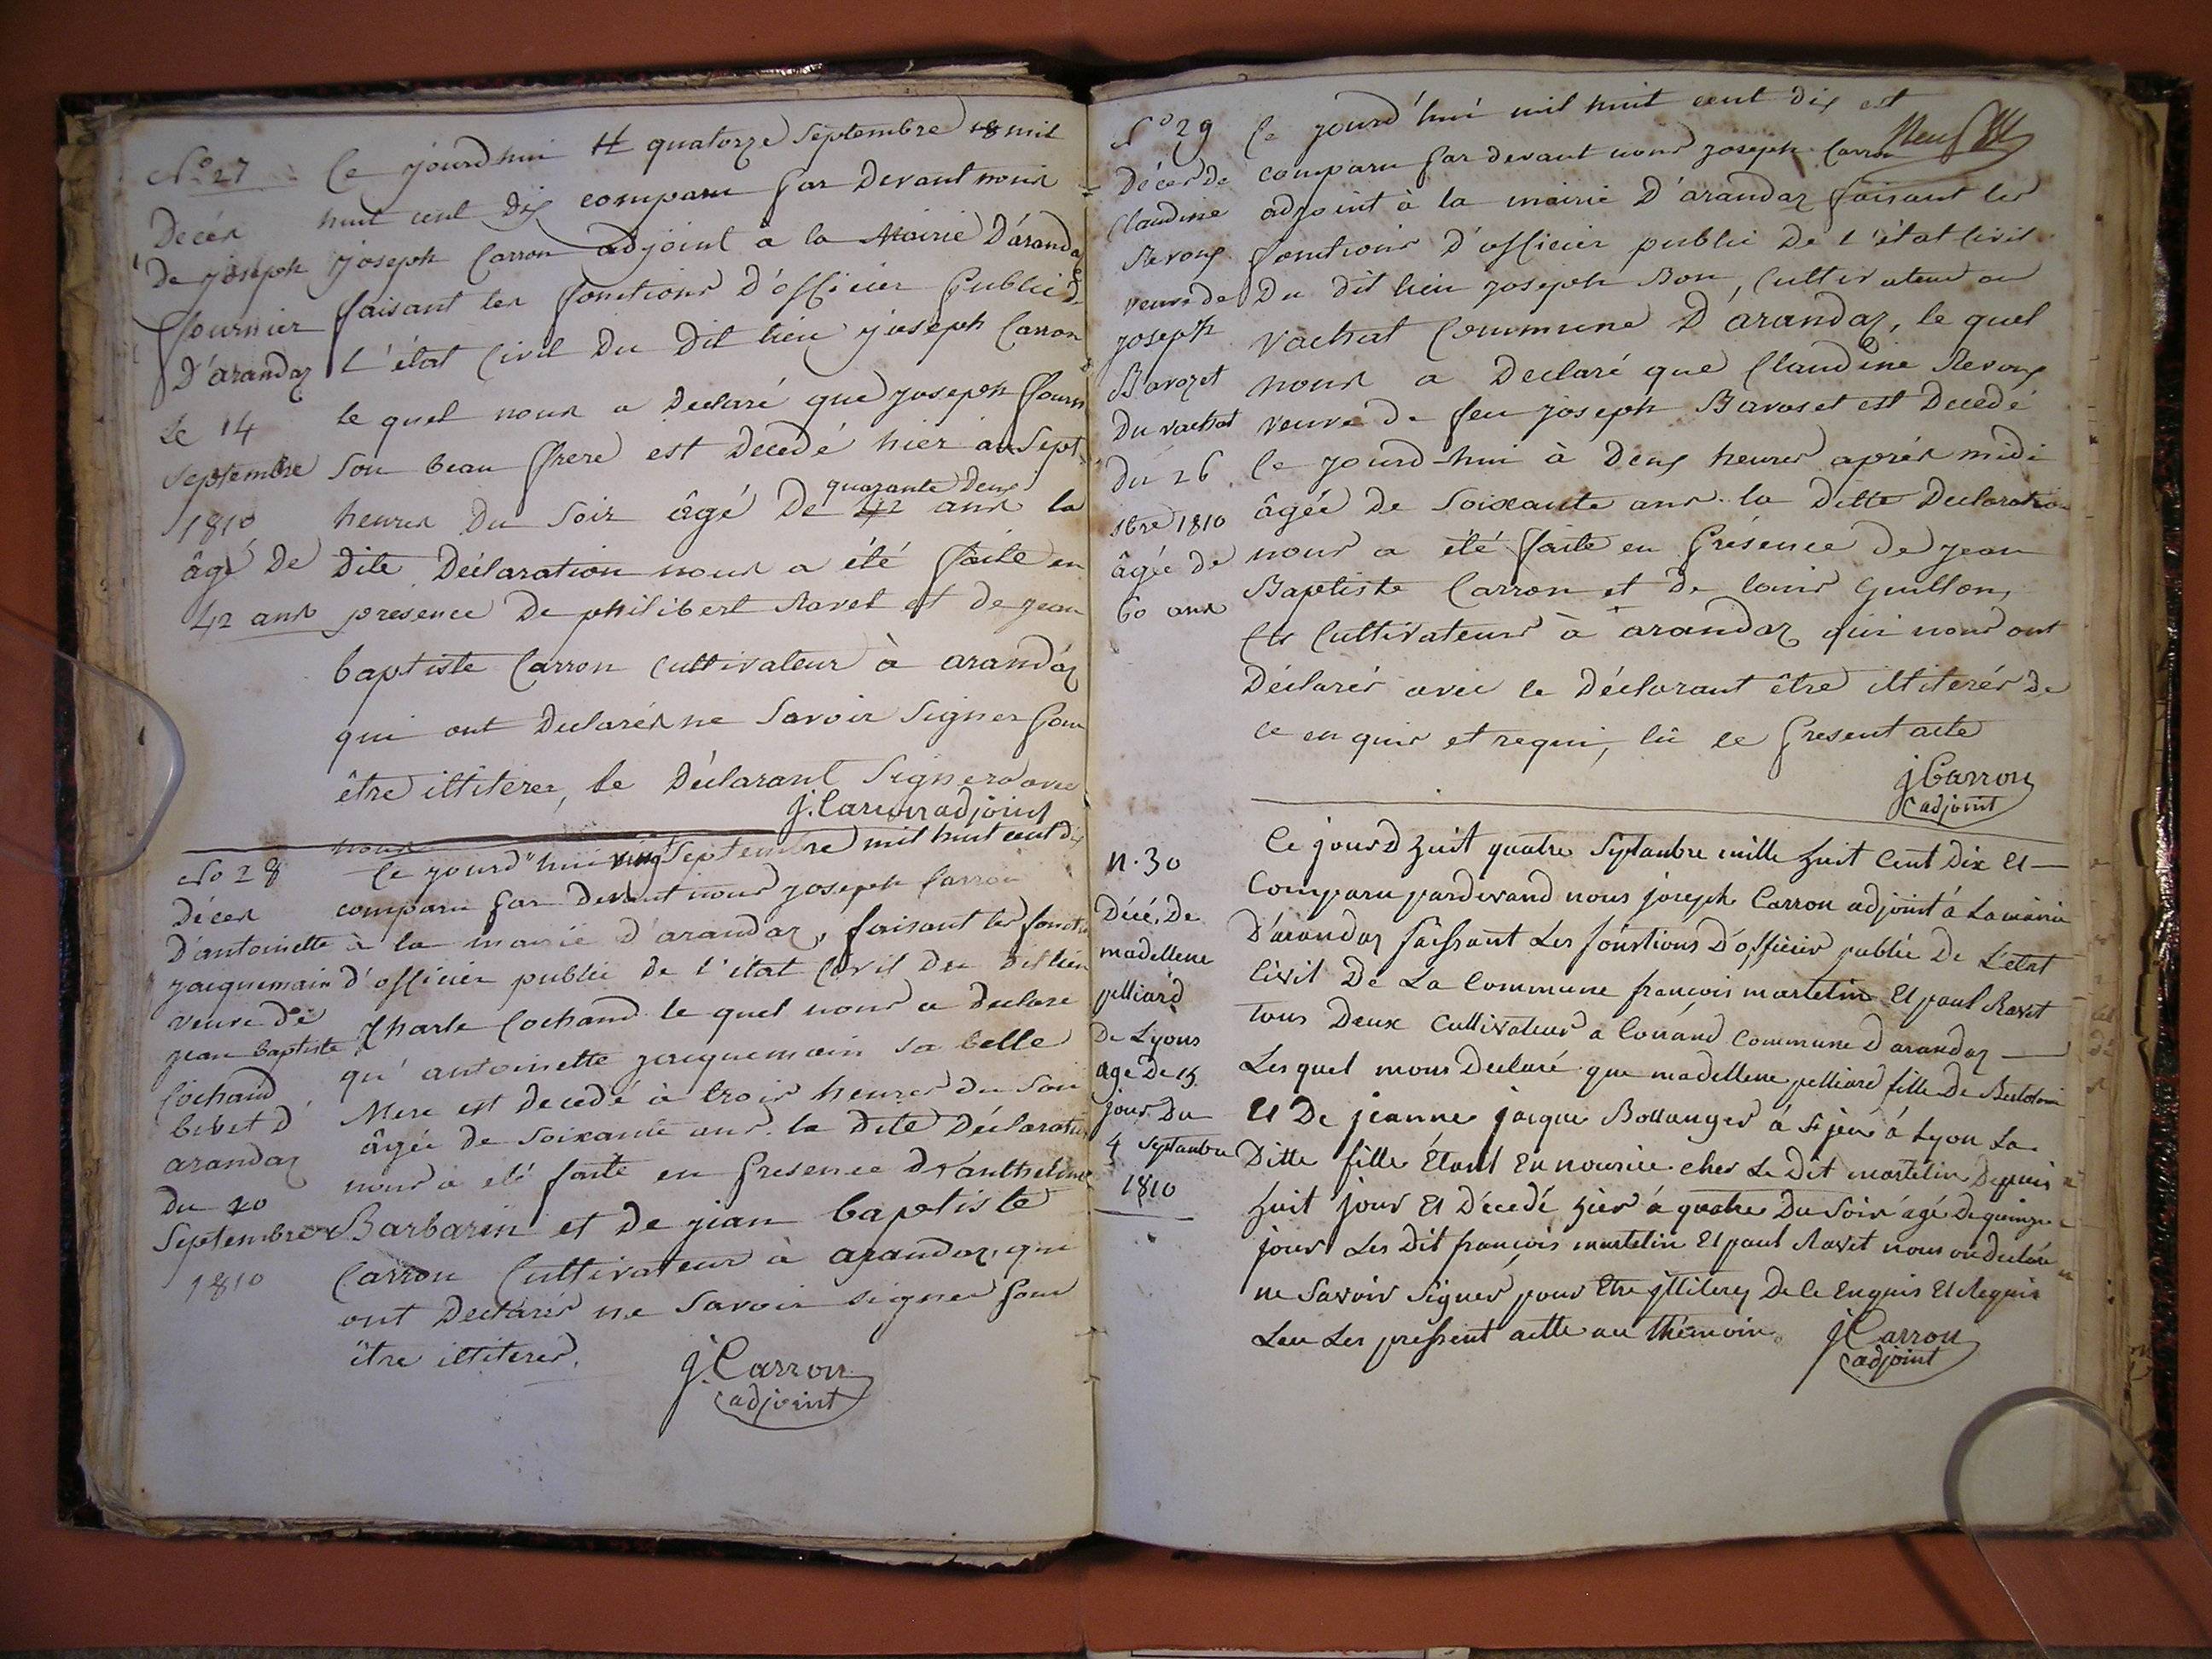 No 27
Décés
de joseph
fournier
D'arandaz
Le 14
septembre
1810
âgé De
42 ans
Ce jourdhui quatorze septembre mil
huit cent dix comparu par Devant nous
joseph Carron adjoint à la Mairie D'aranda
faisant les fonctions D'officier Public De
L'état Civil Du Dit lieu joseph Carron
le quel nous a Declaré que joseph fourn
son beau frere est Decedé hier au Sept
heures Du Soir âgé De quarante Deux ans la
Dite Déclaration nous a été faite en
presence De philibert Ravet et de jean
baptiste Carron Cultivateur à arandaz
qui ont Declarés ne Savoir Signer pour
être illiterer, le Déclarant Signera avec
nous
J. Carron adjoint
No 28
Décés
D'antoinette
jacquemain
veuve de
jean baptiste
Cochand
D
arandaz
Du 20
Septembre
1810
Ce jourd'hui ving Septembre mil huit cent dix
comparu par Devant nous joseph Carron
à la mairie d'arandaz, faisant les fonctio
d'officier public de l'état Civil du dit lieu
Charle Cochand le quel nous a declare
qu'antoinette jacquemain sa belle
Mere est decedé à trois heures du Soir
âgée de Soixante ans. la dite Déclaration
nous a eté faite en Presence D'anthelme
Barbarin et de jean baptiste
Carron Cultivateur à arandaz, qui
ont Declarés ne Savoir signer pour
être illiterés.
J. Carron
adjoint
No 29
Décés de
Claudine
Revoux
veuve de
joseph
Barozet
Du vachat
du 26
1810
âgée de
60 ans
Ce jourd'hui mil huit cent dix est
comparu par devant nous joseph Carron
adjoint à la mairie D'arandaz faisant les
fonctions D'officier public De l'état Civil
Du dit lieu joseph Bon, Cultivateur au
vachat Commune D'arandaz, le quel
nous a Declaré que Claudine Revoux
veuve de feu joseph Baroset est Decedé
le jourd-hui à Deux heures aprés midi
âgée de Soixante ans. la Ditte Declaration
nous a été faite en Présence de jean
Baptiste Carron et de louis Guillon,
Cultivateurs à arandaz qui nous ont
Déclarés avec le Déclarant être illiterés De
ce en quis et requi, lû le Present acte
J Carron
adjoint
N. 30
Décé. De
madellene
pelliard
De Lyons
age De 15
jour. Du
4 Septanbre
1810
Ce jourd huit quatre Septanbre mille huit Cent Dix Et
Comparu pardevand nous joseph Carron adjoint á La mairie
D'arandaz faissant Les fonstions D'officier publie De L'etat
Civil De La Commune françois martelin Et paul Ravet
tous Deux Cultivateur a Conand Commune D arandaz
Lesquel nous Declaré que madellene pelliard fille De
Et De jeanne jacque Bollanger á á Lyon La
Ditte fille Étant En nourice cher Le Dit martelin Depuis
huit jour Et Décedé hier á quatre Du Soir ágé De quinze
jour Les Dit françois martelin Et paul Ravet nous on declaré
ne Savoir Signer pour Etre illiterez De Ce Enquis Et Requis
Leu Les pressent actte au thémoin.
J Carron
adjoint